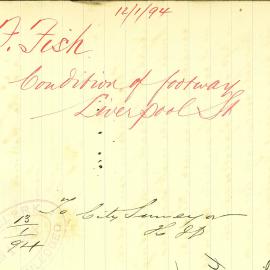 12/1/94
F. Fish
Condition of footway
Liverpool St
To City Surveyor
13
1
94